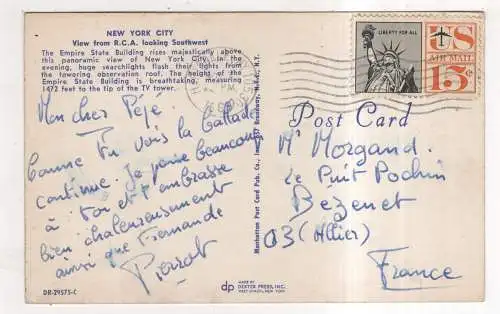 NEW YORK CITY
View from R.C.A. looking Southwest
The Empire State Building rises majestically above
this panoramic view of New York City. In the
evening, huge searchlights flash their lights from
the towering observation roof. The height of the
Empire State Building is breathtaking, measuring
1472 feet to the tip of the TV tower.
Mon cher Pépé
comme Tu vois la ballade
continue. Je pense beaucoup
à toi et t'embrasse
bien chaleureusement
ainsi que Fernande
Pierrot
DR-29575-C
Manhattan Post Card Pub. Co., Inc., Broadway, N.Y.
dp
MADE BY
DEXTER PRESS, INC.
WEST NYACK, NEW YORK
LIBERTY FOR ALL
US
AIR MAIL
15¢
PM
Post Card
Mr Morgand.
Le Puit Pochin
Bézenet
03 (Allier)
France